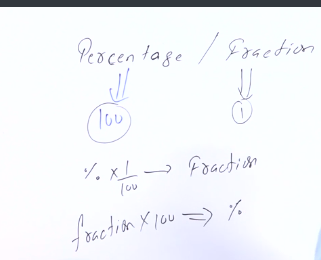 Percentage / Fraction
100 1
% × 1/100 → Fraction
fraction × 100 ⇒ %